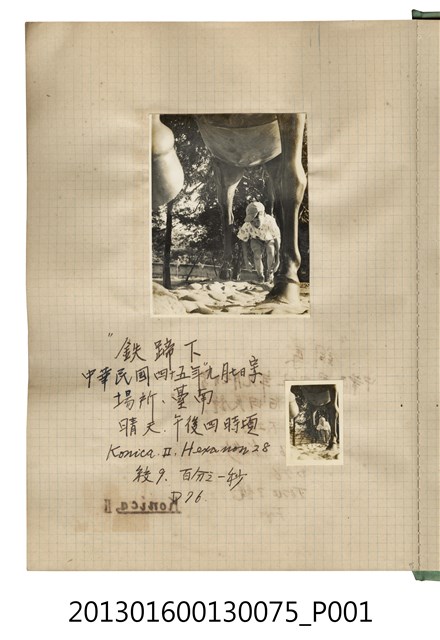 "鉄蹄下"
中華民國四十五年九月七日寫
場所、臺南
晴天、午後四時頃
Konica II. Hexanon 28
絞9. 百分之一秒
D76
Konica, II
201301600130075_P001